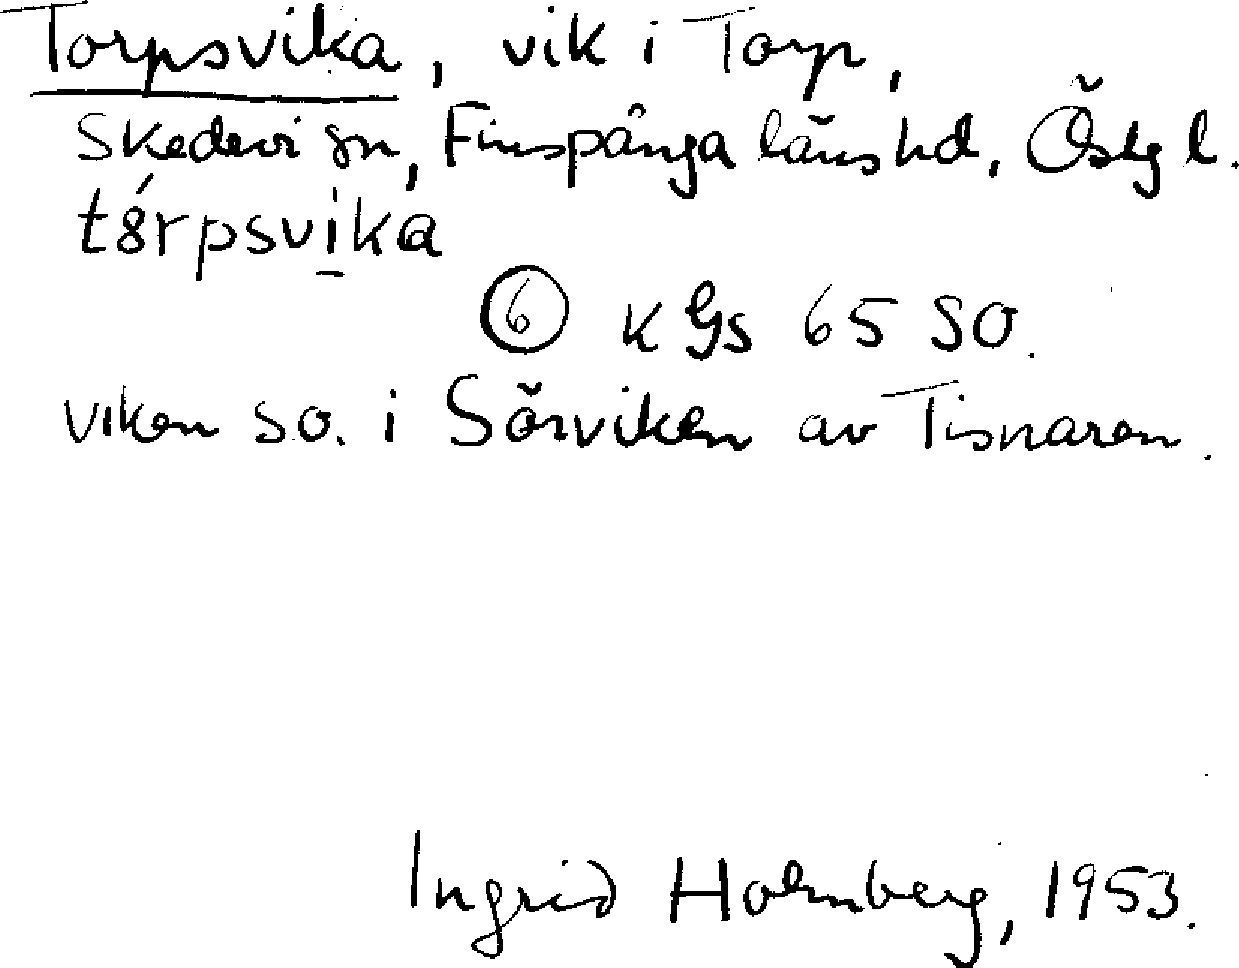 Torpsvika, vik i Torp,
Skedevi sn, Finspånga läns hd, Östg l.
tórpsvika
⑥ K Gs 65 SO.
viken so. i Sörviken av Tisnaren.
Ingrid Holmberg, 1953.